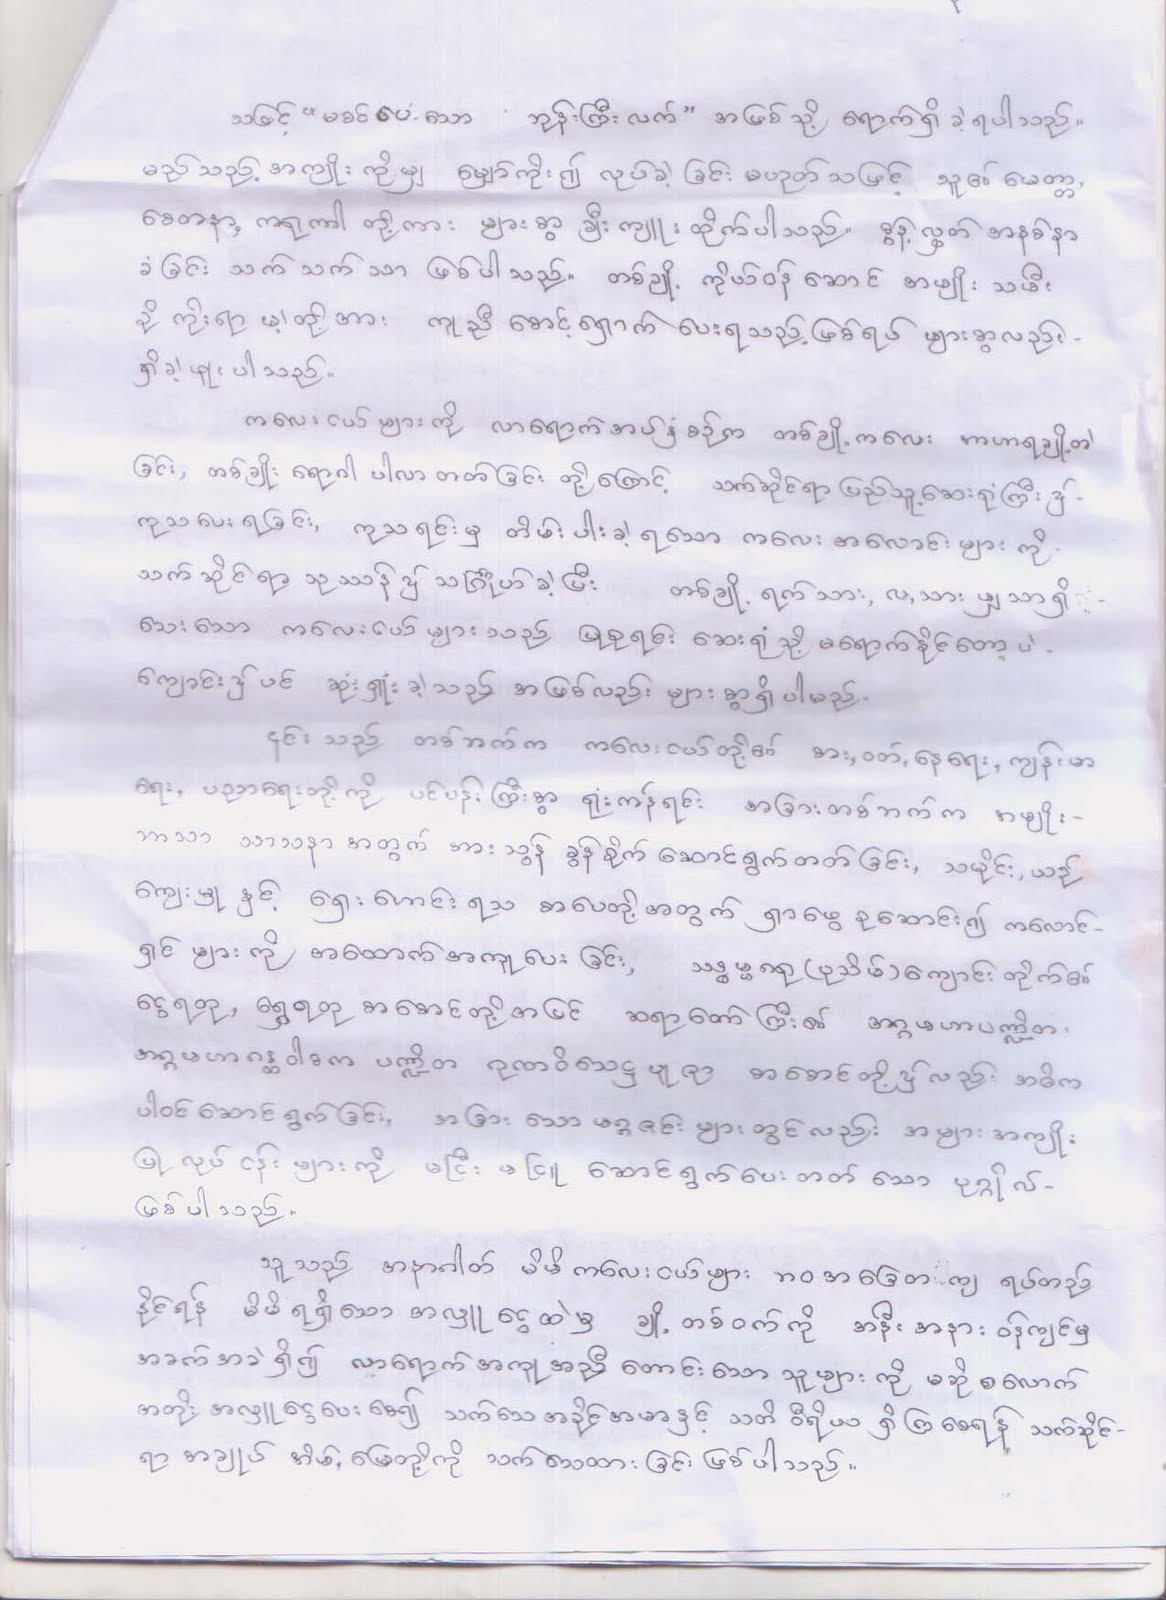 သဖြင့် “မခင်ပေ-သော ဘုန်းကြီးလက်” အဖြစ်သို့ ရောက်ရှိခဲ့ရပါသည်။
မည်သည့်အကျိုးကိုမျှ မျှော်ကိုး၍ လုပ်ခဲ့ခြင်းမဟုတ်သဖြင့် သူ၏မေတ္တာ,
စေတနာ, ကရုဏာတို့ကား များစွာ ချီးကျူးထိုက်ပါသည်။ စွန့်လွှတ်အနစ်နာ
ခံခြင်း သက်သက်သာ ဖြစ်ပါသည်။ တစ်ချို့ ကိုယ်ဝန်ဆောင် အမျိုးသမီး
ကိုးရာမဲ့တို့အား ကူညီစောင့်ရှောက်ပေးရသည့်ဖြစ်ရပ်များစွာလည်း-
ရှိခဲ့ဖူးပါသည်။
ကလေးငယ်များကို လာရောက်အပ်နှံစဉ်က တစ်ချို့ကလေး အာဟာရချို့တဲ့
ခြင်း, တစ်ချို့ ရောဂါပါလာတတ်ခြင်းတို့ကြောင့် သက်ဆိုင်ရာပြည်သူ့ဆေးရုံကြီး၌-
ကုသပေးရခြင်း, ကုသရင်းမှ တိမ်းပါးခဲ့ရသော ကလေးအလောင်းများကို-
သက်ဆိုင်ရာ သုဿာန်၌ သင်္ဂြိုဟ်ခဲ့ပြီး တစ်ချို့ ရက်သား, လ,သားမျှသာရှိ-
သေးသော ကလေးငယ်များသည် ပြုစုရင်း ဆေးရုံသို့ မရောက်နိုင်တော့ပဲ-
ကျောင်း၌ပင် ဆုံးရှုံးခဲ့သည့် အဖြစ်လည်း များစွာရှိပါမည်.
၎င်းသည် တစ်ဘက်က ကလေးငယ်တို့၏ စား,ဝတ်,နေရေး,ကျန်းမာ
ရေး, ပညာရေးတို့ကို ပင်ပန်းကြီးစွာ ရုန်းကန်ရင်း အခြားတစ်ဘက်က အမျိုး-
ဘာသာ သာသနာအတွက် အားသွန်ခွန်စိုက်ဆောင်ရွက်တတ်ခြင်း, သမိုင်း,ယဉ်
ကျေးမှုနှင့် ရှေးဟောင်းရသစာပေတို့အတွက် ရှာဖွေစုဆောင်း၍ ကလောင်-
ရှင်များကို အထောက်အကူပေးခြင်း, သဒ္ဓမ္မ (ပုသိမ်) ကျောင်းတိုက်၏
ငွေရတု, ရွှေရတုစာစောင်တို့အပြင် ဆရာတော်ကြီး၏ အဂ္ဂမဟာပဏ္ဍိတ,
အဂ္ဂမဟာဂန္ထဝါစကပဏ္ဍိတ ဂုဏ်ဝိသေဋ္ဌပူဇာ စာစောင်တို့၌လည်း အဓိက
ပါဝင်ဆောင်ရွက်ခြင်း, အခြားသောမဂ္ဂဇင်းများတွင်လည်း အများအကျိုး
ပြုလုပ်ငန်းများကို မငြီးမငြူ ဆောင်ရွက်ပေးတတ်သော ပုဂ္ဂိုလ်-
ဖြစ်ပါသည်။
သူသည် အနာဂါတ် မိမိကလေးငယ်များ ဘဝအခြေတကျ ရပ်တည်
နိုင်ရန် မိမိရရှိသောအလှူငွေထဲမှ ချို့တစ်ဝက်ကို အနီးအနားဝန်းကျင်မှ
အခက်အခဲရှိ၍ လာရောက်အကူအညီတောင်းသောသူများကို မဆိုစလောက်
အတိုးအလှူငွေပေးစေ၍ သက်သေအခိုင်အမာနှင့် သတိဝီရိယရှိကြစေရန် သက်ဆိုင်-
ရာအချုပ်အိမ်,မြေတို့ကို သက်သေထားခြင်းဖြစ်ပါသည်။